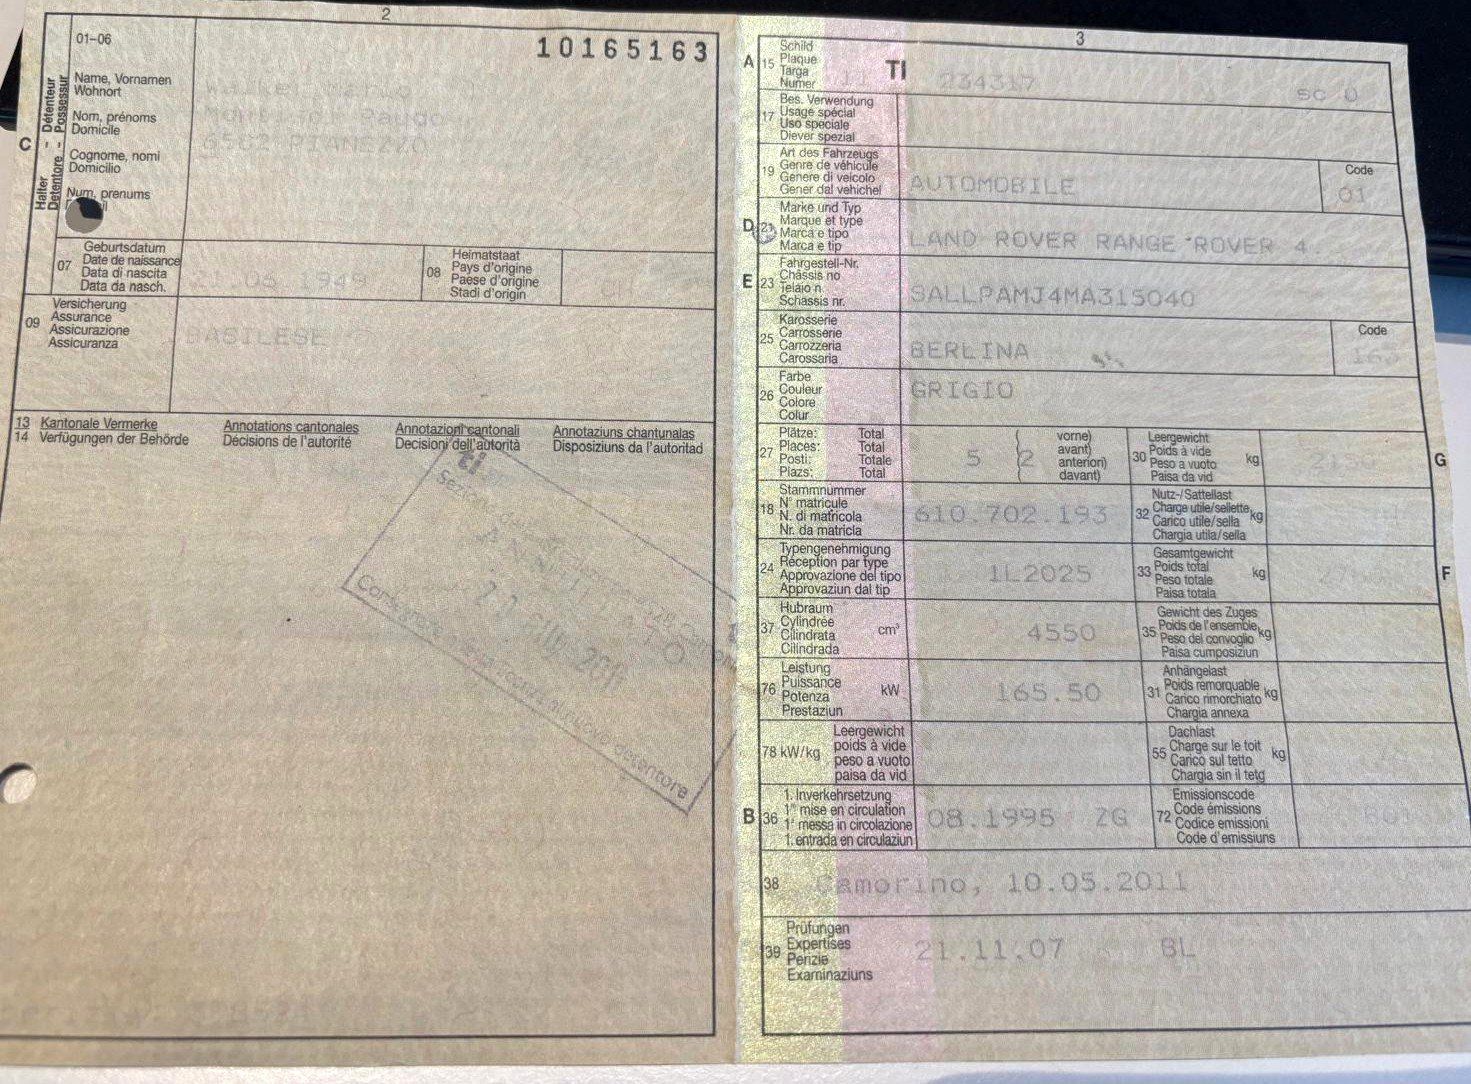 2
01-06
10165163
C
Halter - Détenteur
Detentore - Possessur
Name, Vornamen
Wohnort
Nom, prénoms
Domicile
Cognome, nomi
Domicilio
Num, prenums
PIANEZZO
07
Geburtsdatum
Date de naissance
Data di nascita
Data da nasch.
08
Heimatstaat
Pays d'origine
Paese d'origine
Stadi d'origin
CH
09
Versicherung
Assurance
Assicurazione
Assicuranza
BASILESE
13 Kantonale Vermerke
14 Verfügungen der Behörde
Annotations cantonales
Décisions de l'autorité
Annotazioni cantonali
Decisioni dell'autorità
Annotaziuns chantunalas
Disposiziuns da l'autoritad
ti
2011
Camorino
detentore
3
A
15
Schild
Plaque
Targa
Numer
TI
234317
SC 0
17
Bes. Verwendung
Usage spécial
Uso speciale
Diever spezial
19
Art des Fahrzeugs
Genre de véhicule
Genere di veicolo
Gener dal vehichel
AUTOMOBILE
Code
01
D
21
Marke und Typ
Marque et type
Marca e tipo
Marca e tip
LAND ROVER RANGE ROVER 4
E
23
Fahrgestell-Nr.
Châssis no
Telaio n.
Schassis nr.
SALLPAMJ4MA315040
25
Karosserie
Carrosserie
Carrozzeria
Carossaria
BERLINA
Code
26
Farbe
Couleur
Colore
Colur
GRIGIO
27
Plätze: Total
Places: Total
Posti: Totale
Plazs: Total
5
2
vorne)
avant)
anteriori)
davant)
30
Leergewicht
Poids à vide
Peso a vuoto
Paisa da vid
kg
G
18
Stammnummer
N° matricule
N. di matricola
Nr. da matricla
610.702.193
32
Nutz-/Sattellast
Charge utile/sellette
Carico utile/sella
Chargia utila/sella
kg
24
Typengenehmigung
Réception par type
Approvazione del tipo
Approvaziun dal tip
1L2025
33
Gesamtgewicht
Poids total
Peso totale
Paisa totala
kg
F
37
Hubraum
Cylindrée
Cilindrata
Cilindrada
cm³
4550
35
Gewicht des Zuges
Poids de l'ensemble
Peso del convoglio
Paisa cumposiziun
kg
76
Leistung
Puissance
Potenza
Prestaziun
kW
165.50
31
Anhängelast
Poids remorquable
Carico rimorchiato
Chargia annexa
kg
78 kW/kg
Leergewicht
poids à vide
peso a vuoto
paisa da vid
55
Dachlast
Charge sur le toit
Carico sul tetto
Chargia sin il tetg
kg
B
36
1. Inverkehrsetzung
1re mise en circulation
1a messa in circolazione
1. entrada en circulaziun
08.1995 ZG
72
Emissionscode
Code émissions
Codice emissioni
Code d'emissiuns
B01
38
Camorino, 10.05.2011
39
Prüfungen
Expertises
Perizie
Examinaziuns
21.11.07 BL